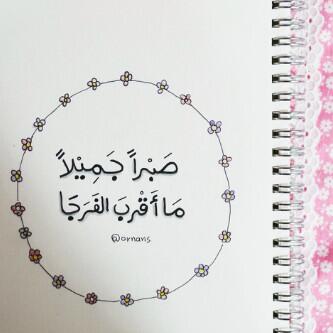 صَبْراً جَمِيْلاً
مَا أَقْرَبَ الفَرَجَا
@ornans